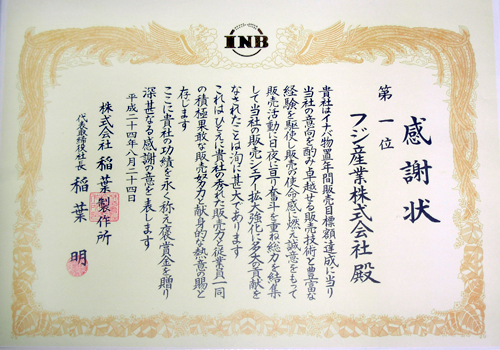 INB
感謝状
第一位
フジ産業株式会社 殿
貴社はイナバ物置年間販売目標額達成に当り
当社の意向を酌み卓越せる販売技術と豊富な
経験を駆使し販売の使命感に燃え誠意をもって
販売活動に日夜に亘り奮斗を重ね総力を結集
して当社の販売シェアー拡大強化に多大の貢献を
なされたことは洵に甚大であります
これはひとえに貴社の秀れた販売力と従業員一同
の積極果敢な販売努力と献身的な熱意の賜と
存じます
ここに貴社の功績を永く称え褒賞金を贈り
深甚なる感謝の意を表します
平成二十四年八月二十四日
株式会社 稲葉製作所
代表取締役社長 稲葉 明